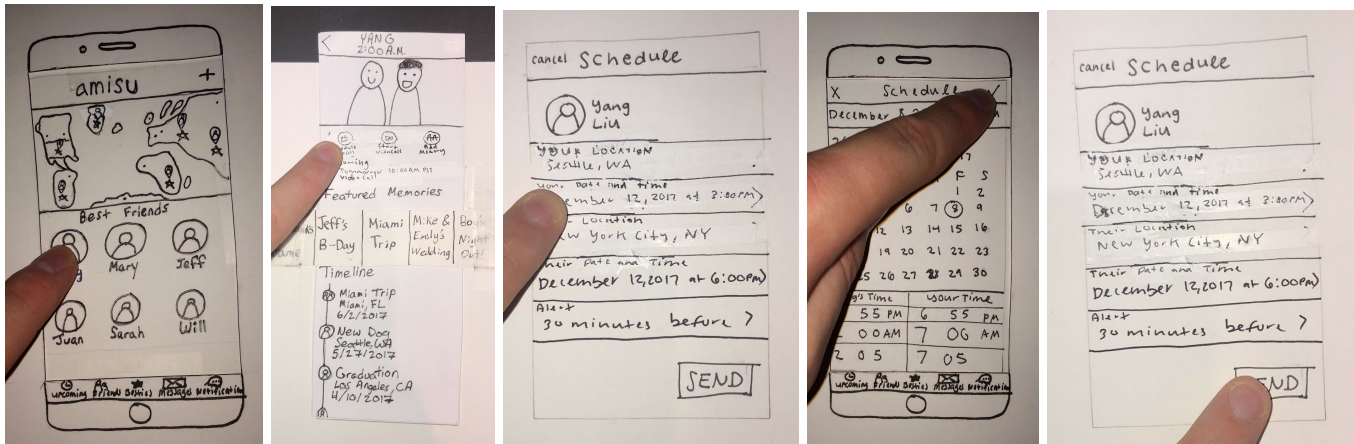 amisu +
Best Friends
Mary Jeff
Juan Sarah Will
upcoming Friends Besties Messages Notification
YANG
2:00 A.M.
Start
Video Call
Add
Memory
Tomorrow 10:00AM PST
Video Call
Featured Memories
Jeff's
B-Day
Miami
Trip
Mike &
Emily's
Wedding
Boy's
Night
Out!
Timeline
Miami Trip
Miami, FL
6/2/2017
New Dog
Seattle, WA
5/27/2017
Graduation
Los Angeles, CA
4/10/2017
cancel Schedule
Yang
Liu
YOUR LOCATION
Seattle, WA
Your Date and Time
December 12, 2017 at 3:00PM >
Location
New York City, NY
Their Date and Time
December 12, 2017 at 6:00pm >
Alert
30 minutes before >
SEND
X Schedule ✓
December 8
17
F S
1 2
6 7 8 9
12 13 14 15 16
19 20 21 22 23
25 26 27 28 29 30
g's Time your Time
55 PM 6 55 PM
00 AM 7 00 AM
2 05 7 05
upcoming Friends Besties Messages Notification
cancel Schedule
Yang
Liu
YOUR LOCATION
Seattle, WA
Your Date and Time
December 12, 2017 at 3:00PM >
Their Location
New York City, NY
Their Date and Time
December 12, 2017 at 6:00pm >
Alert
30 minutes before >
END